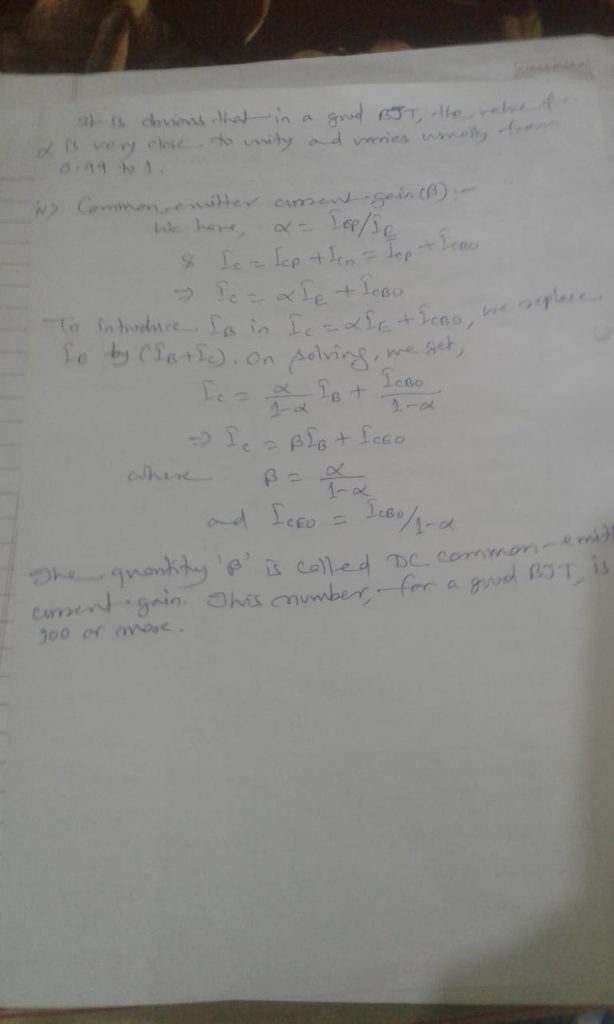 It is obvious that in a good BJT, the value of
α is very close to unity and varies usually from
0.99 to 1.
iv) Common-emitter current gain (β) :-
We have, α = Icp/IE
& Ic = Icp + Icn = Icp + ICBO
⇒ Ic = αIE + ICBO
To introduce IB in Ic = αIE + ICBO, we replace
IE by (IB+Ic). On solving, we get,
Ic = α/1-α IB + ICBO/1-α
⇒ Ic = βIB + ICEO
where β = α/1-α
and ICEO = ICBO/1-α
The quantity 'β' is called DC common-emitt
current gain. This number, for a good BJT, is
100 or more.